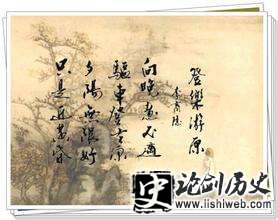 登樂游原
李商隱
向晚意不適
驅車登古原
夕陽無限好
只是近黃昏
史 论剑历史
www.lishiweb.com